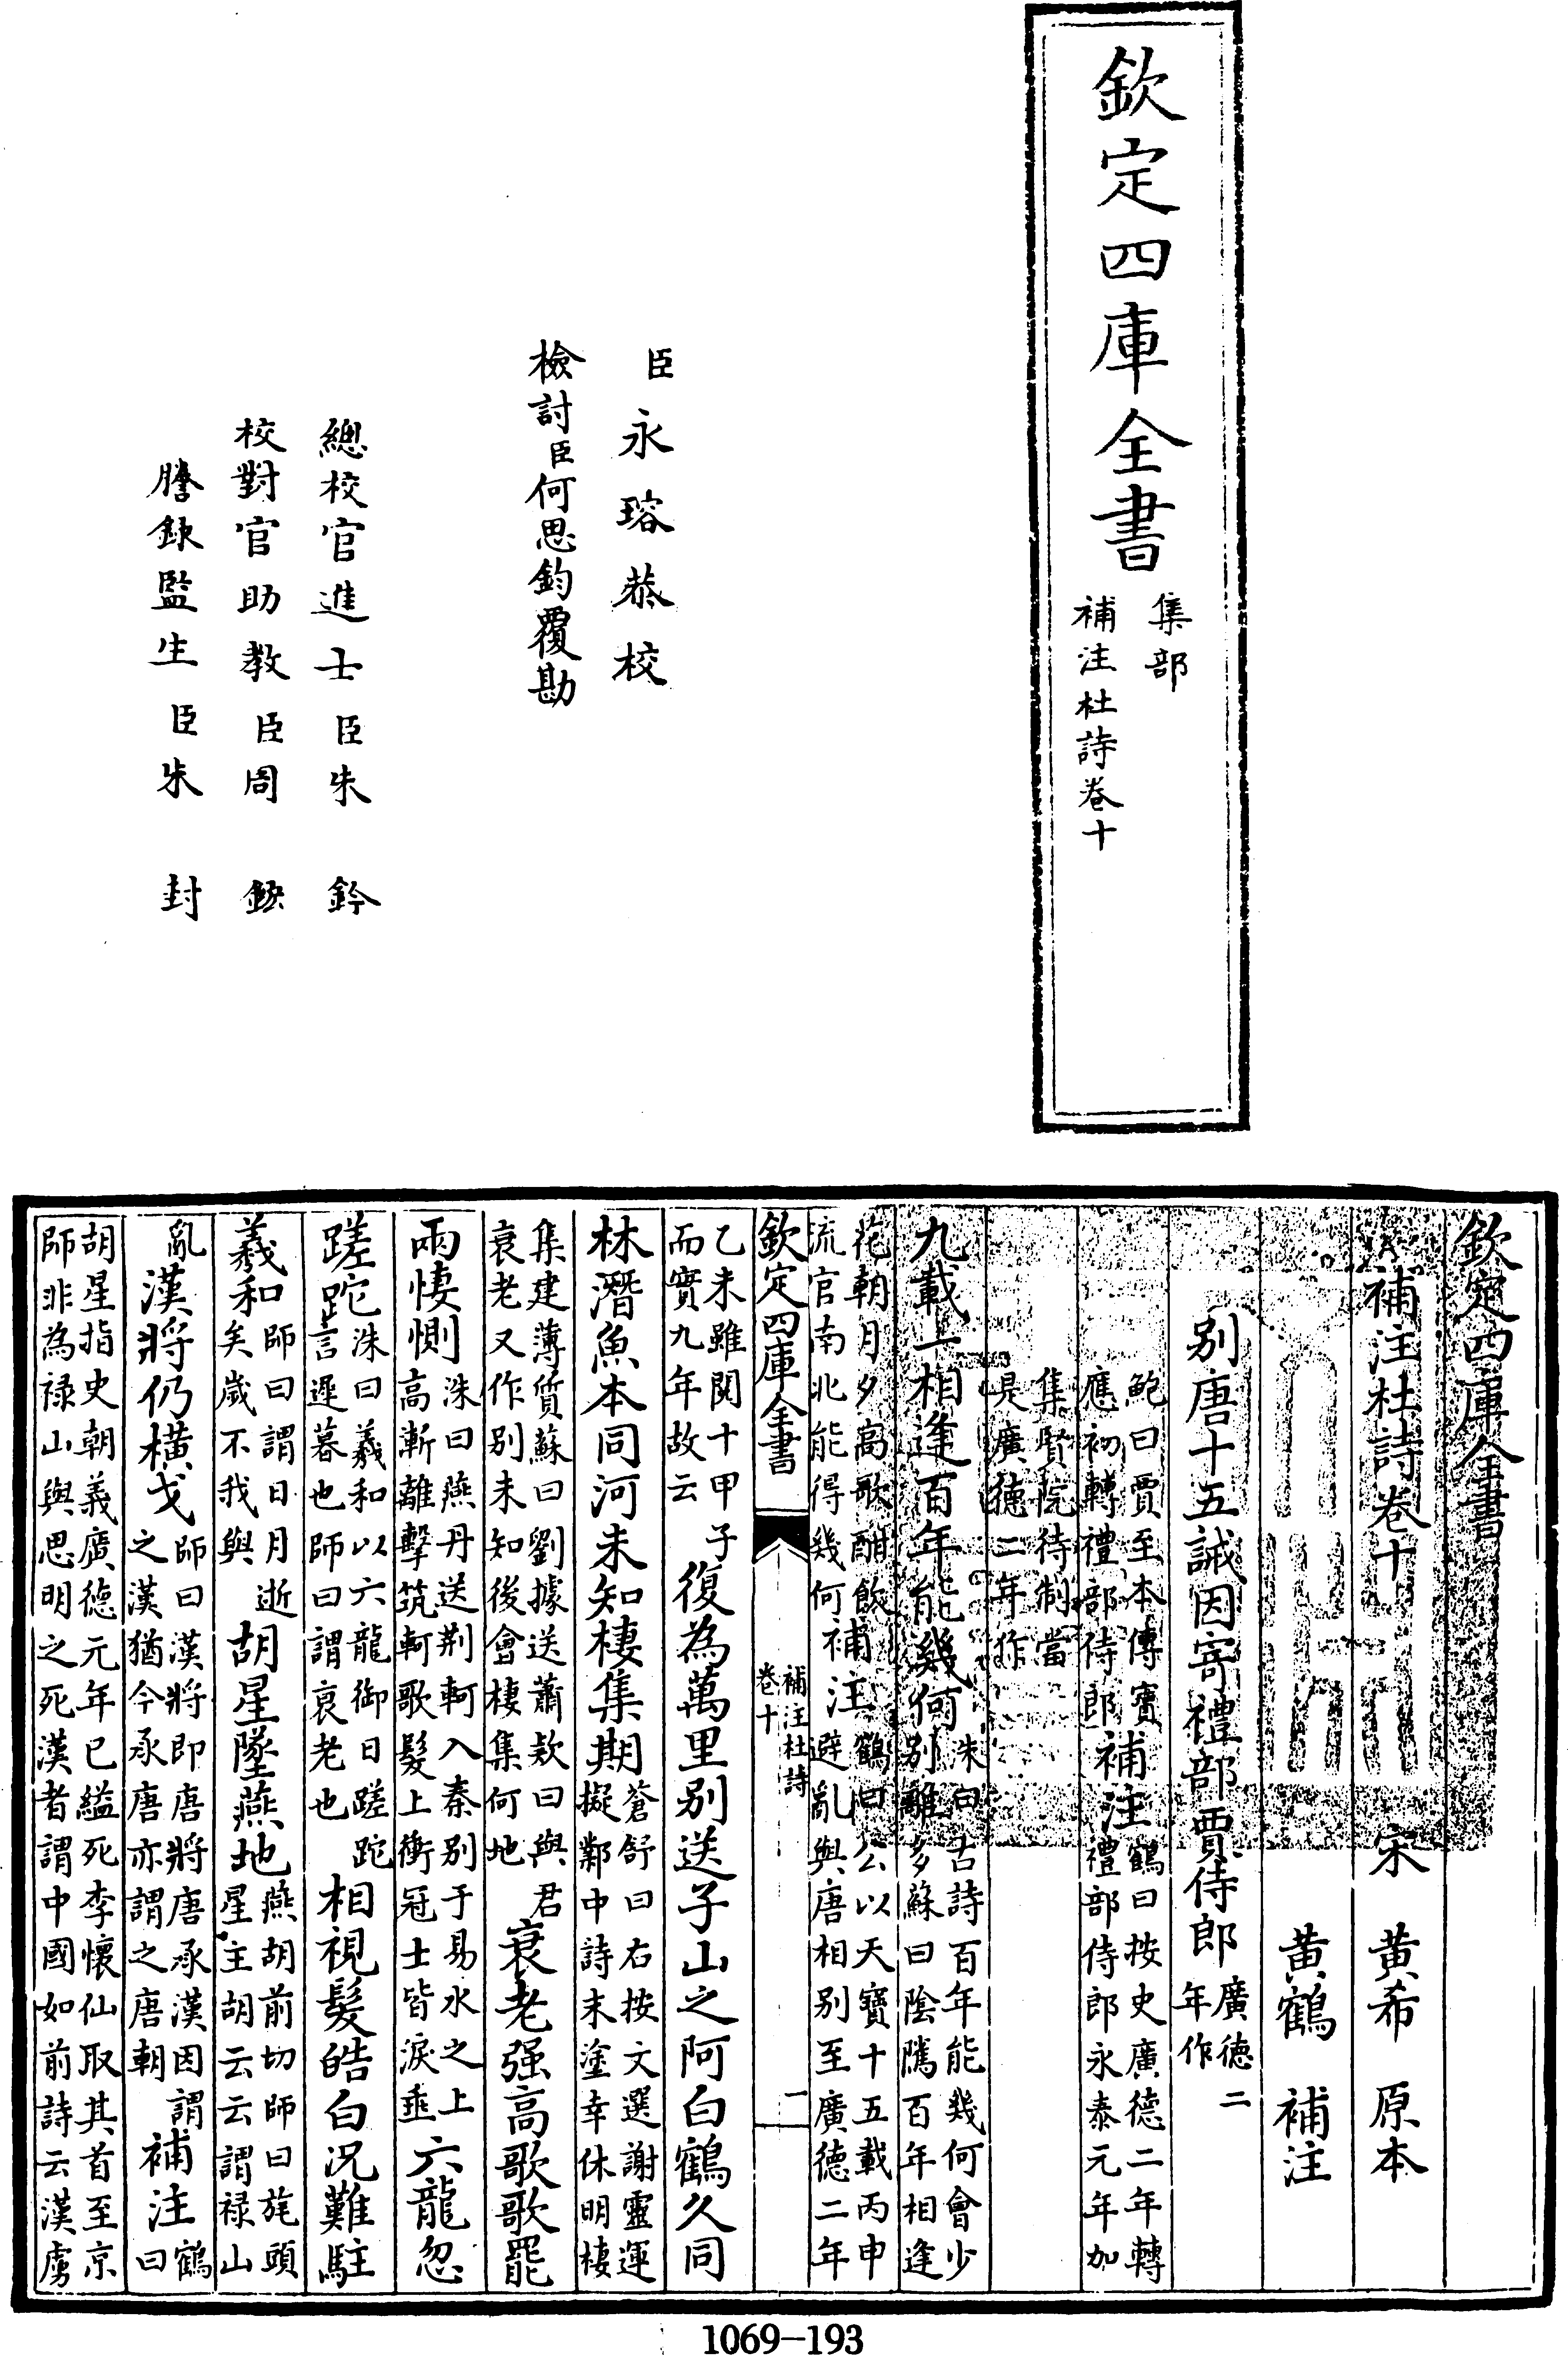 欽定四庫全書
集部
補注杜詩卷十
臣永瑢恭校
檢討臣何思鈞覆勘
總校官進士臣朱鈐
校對官助教臣周鋐
謄錄監生臣朱封
欽定四庫全書
補注杜詩卷十
宋 黃希 原本
黃鶴 補注
别唐十五誡因寄禮部賈侍郎
廣德二
年作
鮑曰賈至本傳寶
應初轉禮部侍郎
補注
鶴曰按史廣德二年轉
禮部侍郎永泰元年加
集賢院待制當
是廣德二年作
九載一相逢百年能幾何
洙曰古詩百年能幾何會少
别離多蘇曰陰隲百年相逢
花朝月夕高歌酣飲
流官南北能得幾何
補注
鶴曰公以天寶十五載丙申
避亂與唐相别至廣德二年
欽定四庫全書
補注杜詩
卷十
一
乙未雖閱十甲子
而實九年故云
復為萬里别送子山之阿白鶴久同
林潛魚本同河未知棲集期
蒼舒曰右按文選謝靈運
擬鄴中詩末塗幸休明棲
集建薄質蘇曰劉據送蕭欵曰與君
衰老又作别未知後會棲集何地
衰老强高歌歌罷
兩悽惻
洙曰燕丹送荆軻入秦别于易水之上
高漸離擊筑軻歌髮上衝冠士皆淚垂
六龍忽
蹉跎
洙曰羲和以六龍御日蹉跎
言遲暮也師曰謂衰老也
相視髮皓白况難駐
羲和
師曰謂日月逝
矣歲不我與
胡星墜燕地
燕胡前切師曰旄頭
星主胡云云謂禄山
亂
漢將仍横戈
師曰漢將即唐將唐承漢因謂
之漢猶今承唐亦謂之唐朝
補注
鶴曰
胡星指史朝義廣德元年已縊死李懷仙取其首至京
師非為禄山與思明之死漢者謂中國如前詩云漢虜
1069-193